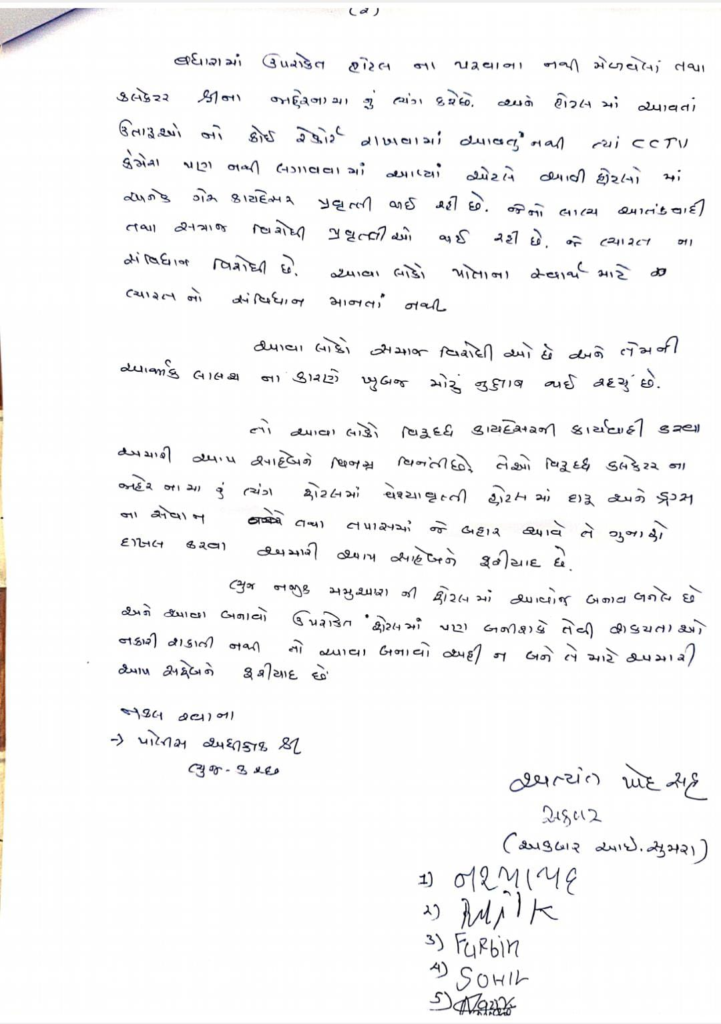 (૨)
વધારામાં ઉપરોક્ત હોટલ ના પરવાના નથી મેળવેલાં તથા
કલેકટર શ્રીના જાહેરનામા નું ભંગ કરેછે. અને હોટલ માં આવતાં
ઉતારૂઓ નો કોઈ રેકોર્ડ રાખવામાં આવતું નથી ત્યાં CCTV
કેમેરા પણ નથી લગાવવામાં આવ્યાં એટલે આવી હોટલો માં
અનેક ગેર કાયદેસર પ્રવૃત્તી થઈ રહી છે. જેનો લાભ આતંકવાદી
તથા સમાજ વિરોધી પ્રવૃત્તીઓ થઈ રહી છે. જે ભારત ના
સંવિધાન વિરોધી છે. આવા લોકો પોતાના સ્વાર્થ માટે
ભારત નો સંવિધાન માનતાં નથી
આવા લોકો સમાજ વિરોધી ઓ છે અને તેમની
આર્થીક લાલચ ના કારણે ખુબજ મોટું નુકશાન થઈ રહ્યું છે.
તો આવા લોકો વિરૂદ્ધ કાયદેસરની કાર્યવાહી કરવા
અમારી આપ સાહેબને વિનમ્ર વિનંતીછે. તેઓ વિરૂદ્ધ કલેકટર ના
જાહેરનામા નું ભંગ હોટલમાં વેશ્યાવૃત્તી હોટલ માં દારૂ અને ડ્રગ્સ
ના સેવાન તથા તપાસમાં જે બહાર આવે તે ગુનાહો
દાખલ કરવા અમારી આપ સાહેબને ફરીયાદ છે.
ભુજ નજીક ની હોટલ માં આવોજ બનાવ બનેલ છે
અને આવા બનાવો ઉપરોક્ત હોટલમાં પણ બનીશકે તેવી શક્યતાઓ
નકારી શકાતી નથી તો આવા બનાવો અહી ન બને તે માટે અમારી
આપ સાહેબને ફરીયાદ છે
નકલ રવાના
→ પોલીસ અધીક્ષક શ્રી
ભુજ - કચ્છ
અત્યંત ખેદ સહ
અકબર
(અકબર આઈ. સુમરા)
1)
2)
3) Furbin
4) SOHIL
5)